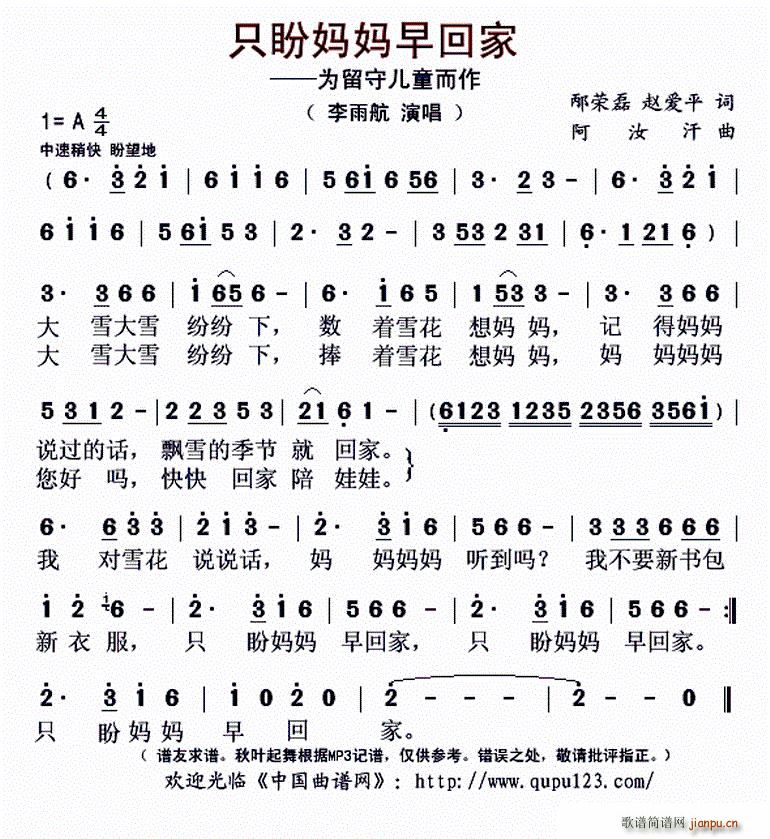 只盼妈妈早回家
——为留守儿童而作
（ 李雨航 演唱 ）
邴荣磊 赵爱平 词
阿 汝 汗 曲
1= A 4/4
中速稍快 盼望地
( 6· 3 2 1 | 6 1 1 6 | 5 6 1 6 5 6 | 3· 2 3 - | 6· 3 2 1 |
6 1 1 6 | 5 6 1 5 3 | 2· 3 2 - | 3 5 3 2 3 1 | 6· 1 2 1 6 ) |
3· 3 6 6 | 1 6 5 6 - | 6· 1 6 5 | 1 5 3 3 - | 3· 3 6 6 |
大 雪大雪 纷纷 下， 数 着雪花 想妈 妈， 记 得妈妈
大 雪大雪 纷纷 下， 捧 着雪花 想妈 妈， 妈 妈妈妈
5 3 1 2 - | 2 2 3 5 3 | 2 1 6 1 - | ( 6123 1235 2356 3561 ) |
说过的话， 飘雪的季节 就 回家。
您好 吗， 快快 回家 陪 娃娃。
6· 6 3 3 | 2 1 3 - | 2· 3 1 6 | 5 6 6 - | 3 3 3 3 6 6 6 |
我 对雪花 说说话， 妈 妈妈妈 听到吗？ 我不要新书包
1 2 1 6 - | 2· 3 1 6 | 5 6 6 - | 2· 3 1 6 | 5 6 6 - :||
新 衣 服， 只 盼妈妈 早回家， 只 盼妈妈 早回家。
2· 3 1 6 | 1 0 2 0 | 2 - - - | 2 - - 0 ||
只 盼 妈 妈 早 回 家。
（ 谱友求谱。秋叶起舞根据MP3记谱，仅供参考。错误之处，敬请批评指正。）
欢迎光临《中国曲谱网》：http://www.qupu123.com/
歌谱简谱网 jianpu.cn